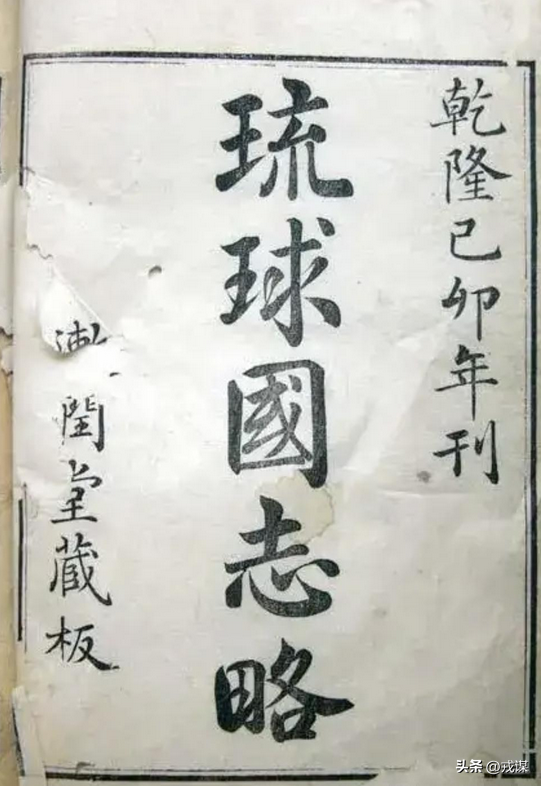 乾隆己卯年刊
琉球國志略
閏堂藏板
头条 @戎谋